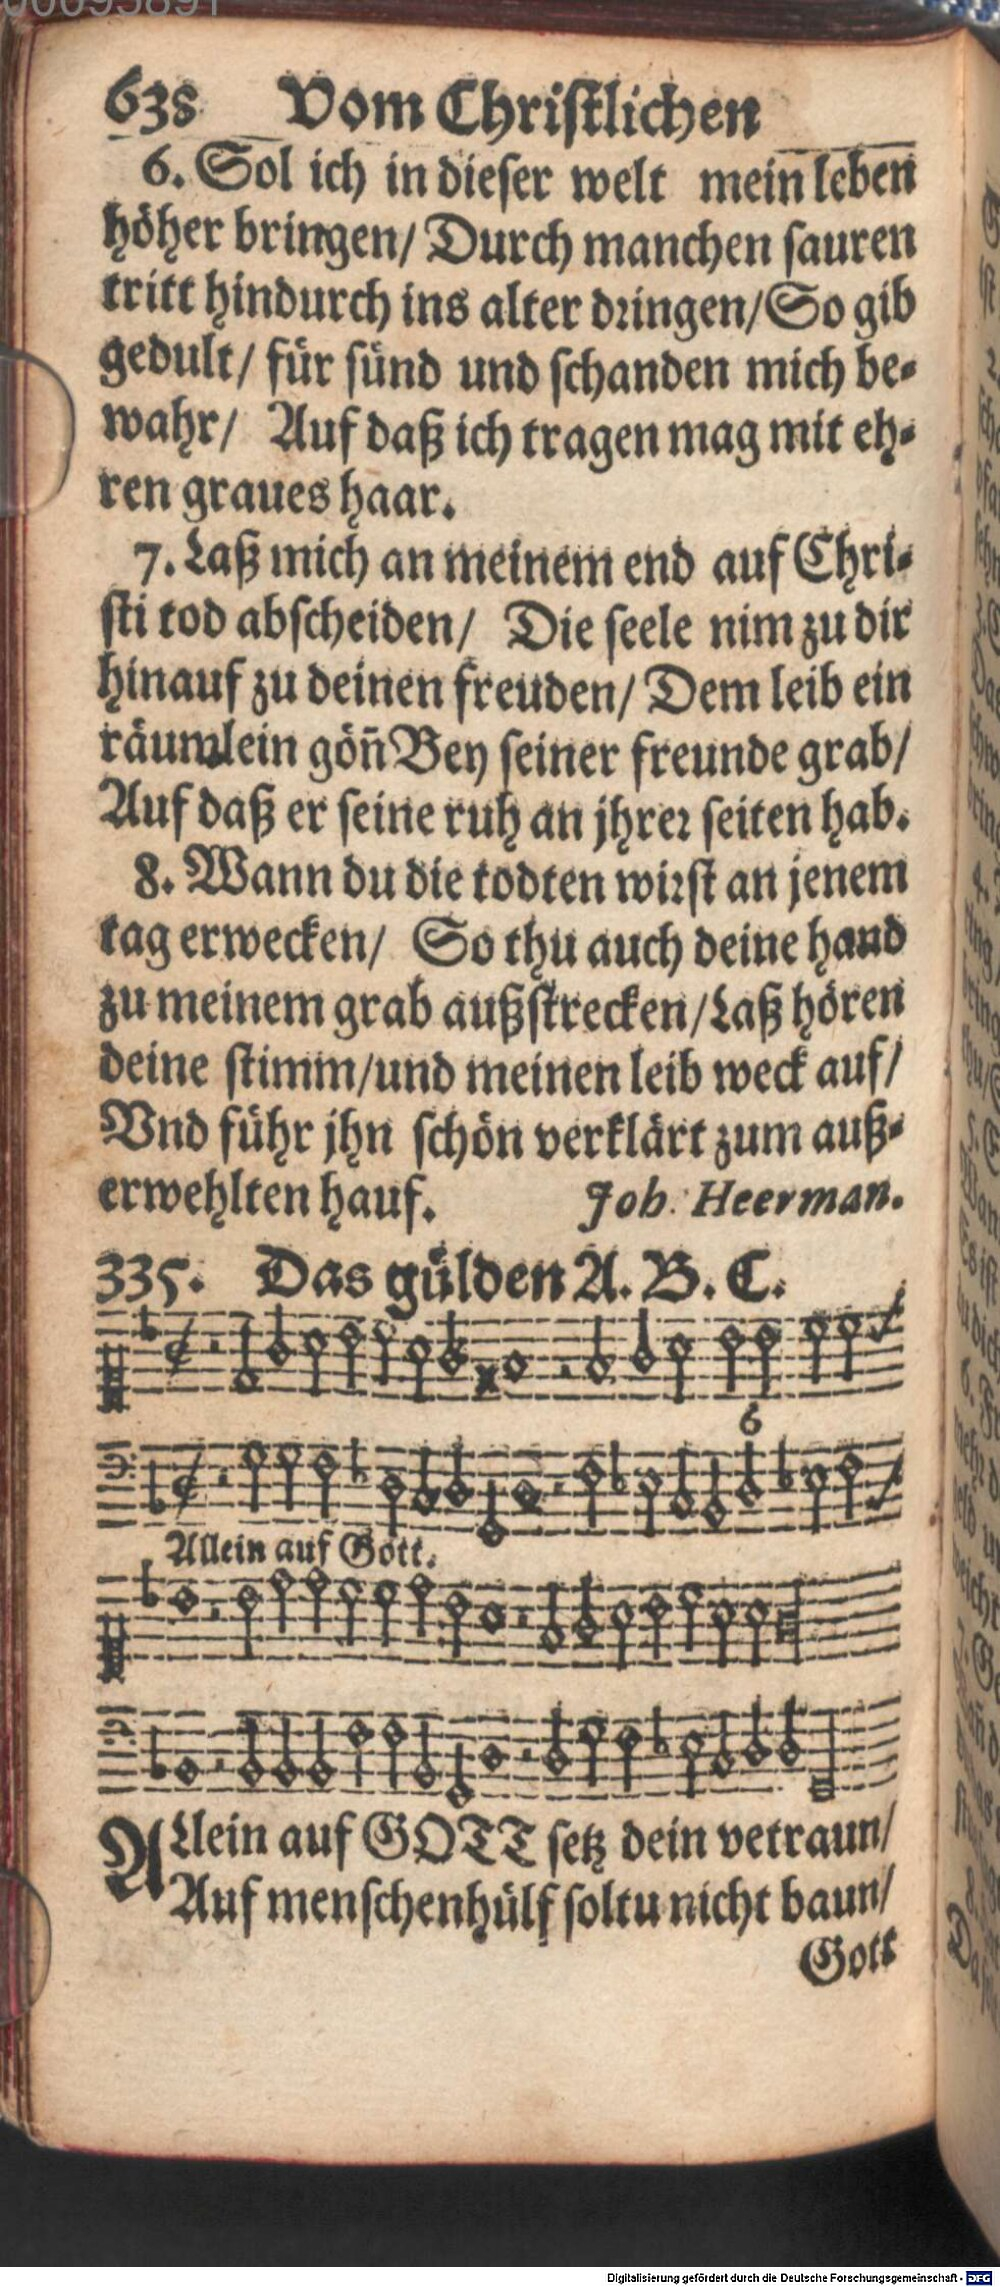 638 Vom Christlichen
6. Sol ich in dieser welt mein leben
höher bringen/ Durch manchen sauren
tritt hindurch ins alter dringen/ So gib
gedult/ für sünd und schanden mich be-
wahr/ Auf daß ich tragen mag mit eh-
ren graues haar.
7. Laß mich an meinem end auf Chri-
sti tod abscheiden/ Die seele nim zu dir
hinauf zu deinen freuden/ Dem leib ein
räumlein göñ Bey seiner freunde grab/
Auf daß er seine ruh an jhrer seiten hab.
8. Wann du die todten wirst an jenem
tag erwecken/ So thu auch deine hand
zu meinem grab außstrecken/ Laß hören
deine stimm/ und meinen leib weck auf/
Vnd führ jhn schön verklärt zum auß-
erwehlten hauf. Joh. Heerman.
335. Das gülden A. B. C.
6
Allein auf Gott.
ALlein auf GOTT setz dein vetraun/
Auf menschenhülf soltu nicht baun/
Gott
Digitalisierung gefördert durch die Deutsche Forschungsgemeinschaft - DFG